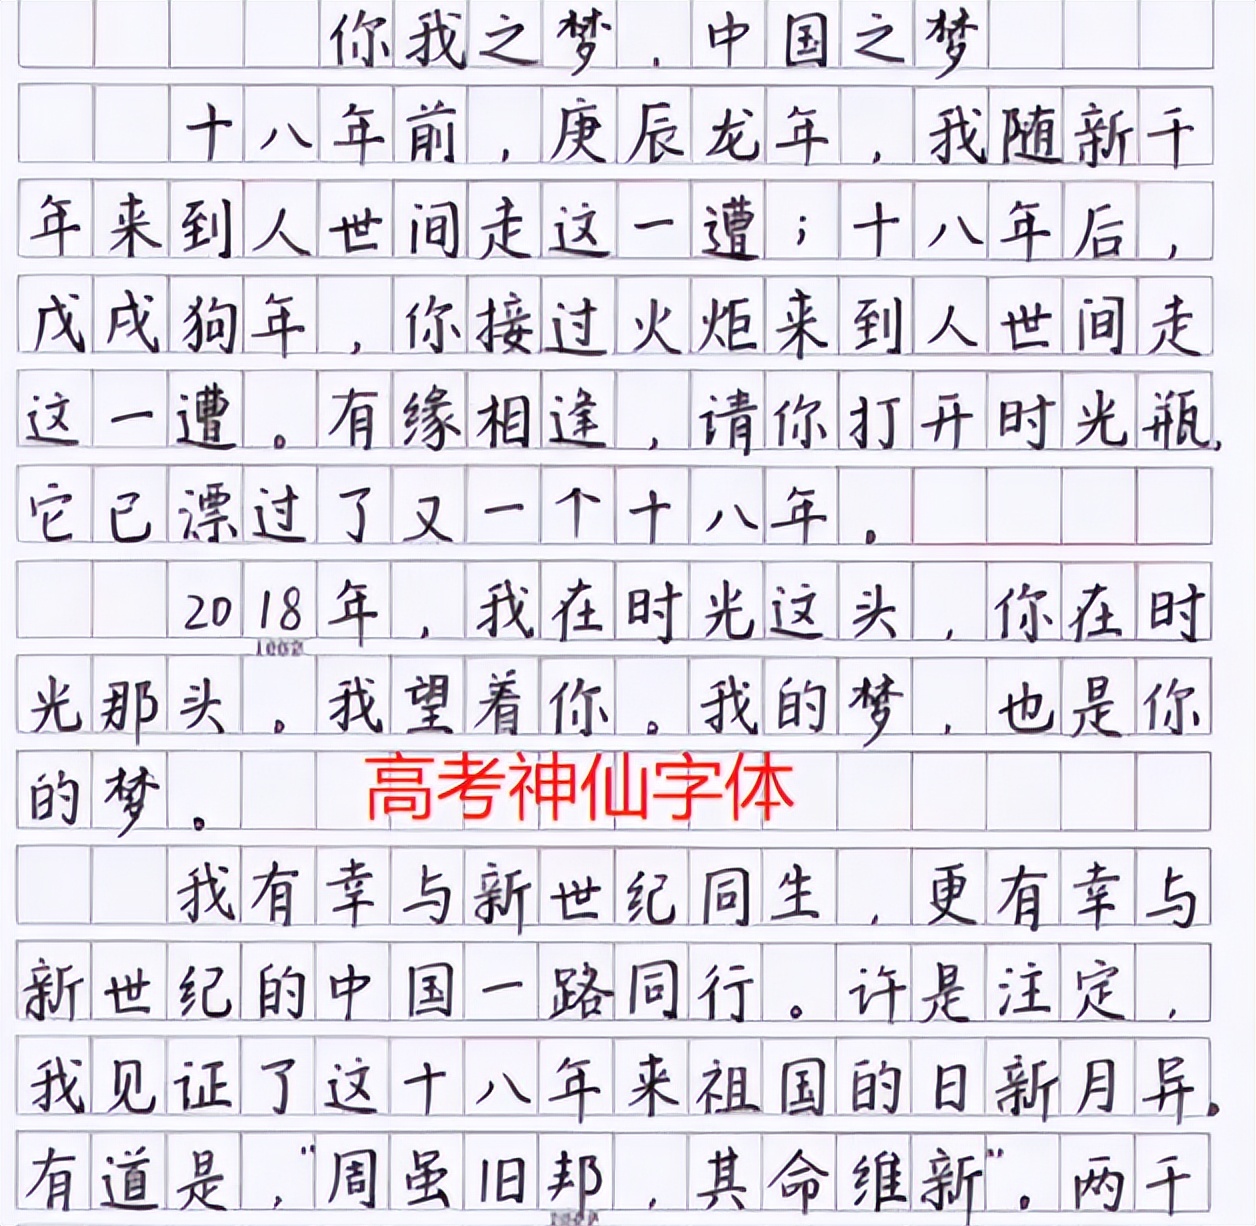 你我之梦,中国之梦
十八年前,庚辰龙年,我随新千
年来到人世间走这一遭;十八年后,
戊戌狗年,你接过火炬来到人世间走
这一遭。有缘相逢,请你打开时光瓶,
它已漂过了又一个十八年。
2018年,我在时光这头,你在时
100字
光那头。我望着你。我的梦,也是你
的梦。
高考神仙字体
我有幸与新世纪同生,更有幸与
新世纪的中国一路同行。许是注定,
我见证了这十八年来祖国的日新月异。
有道是,“周虽旧邦,其命维新”。两千